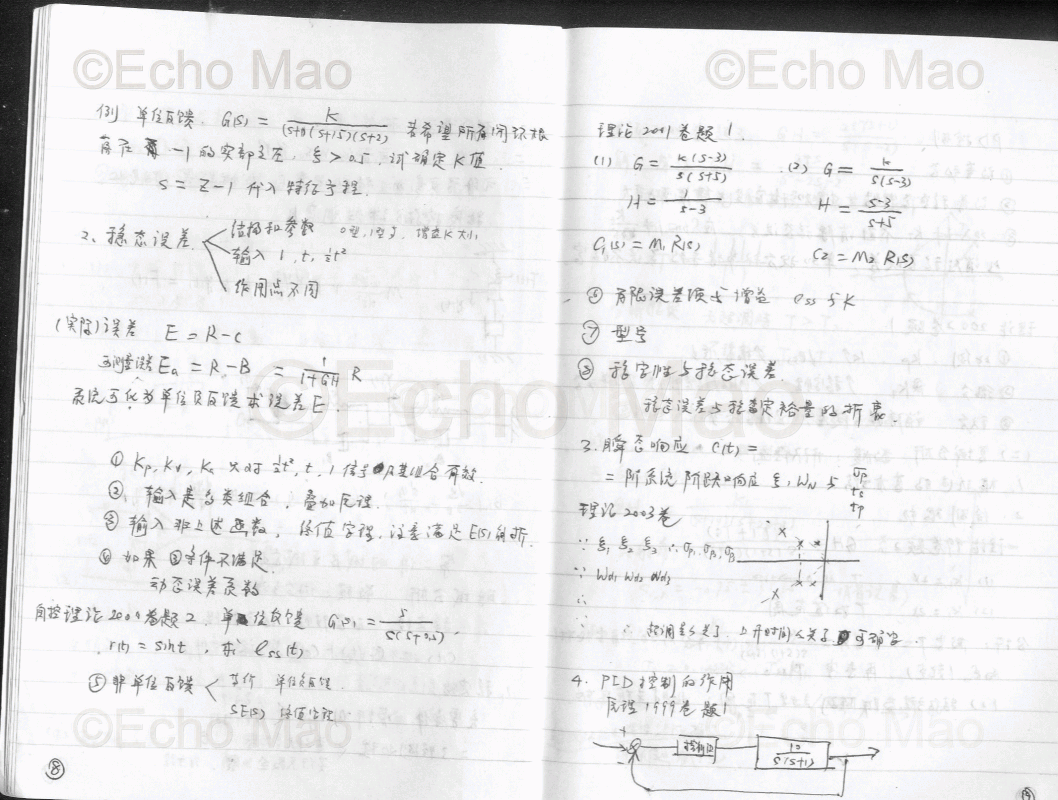 ©Echo Mao
例 单位反馈. G(s) = K/((s+1)(s+1.5)(s+2)) 若希望所有闭环根
落在 -1 的实部之左, ξ > 0.5, 试确定K值.
s = z-1 代入特征方程.
2、稳态误差
结构和参数 0型,1型等, 增益K大小
输入 1, t, ½t²
作用点不同
(实际)误差 E = R-C
可测量误差 Ea = R-B = 1/(1+GH) R
系统可化为单位负反馈求误差E
① Kp, Kv, Ka 只对 ½t², t, 1 信号及其组合有效.
②、输入是多类组合, 叠加原理.
③ 输入非上述函数, 终值定理, 注意满足E(s)解析.
④ 如果③条件不满足
动态误差系数
自控理论 2001卷题2 单位反馈 G(s) = 5/(s(s+0.5)).
r(t) = sint, 求 ess(t)
⑤ 非单位反馈
等价 单位负反馈.
SE(s) 终值定理
©Echo Mao
⑱
©Echo Mao
理论2001卷题1.
(1) G = K(s-3)/(s(s+5)) (2) G = K/(s(s-3))
H = 1/(s-3) H = (s-3)/(s+5)
C1(s) = M1 R(s) C2 = M2 R(s)
⑥ 有限误差项与增益 ess与K
⑦ 型号
⑧ 稳定性与稳态误差.
稳态误差与稳定裕量的折衷.
©Echo Mao
3. 瞬态响应 c(t) =
二阶系统阶跃响应 ξ, Wn 与 σp ts tp
理论2003卷
∵ ξ1 ξ2 ξ3 ∴ σp1 σp2 σp3
∵ Wd1 Wd2 Wd3
∴
∴ 超调量 上升时间 可确定
4. PID控制的作用
原理1999卷题1
+
-
控制四
10/(s(s+1))
©Echo Mao